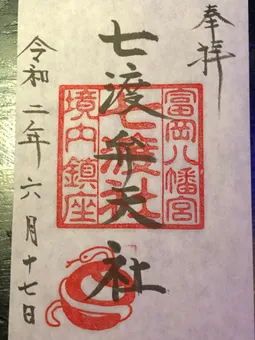 奉拝
七渡弁天社
富岡八幡宮
七渡社
境内鎮座
令和二年六月十七日